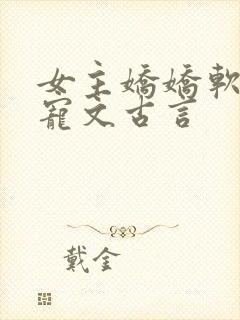 女主嬌嬌軟
寵文古言
戴金